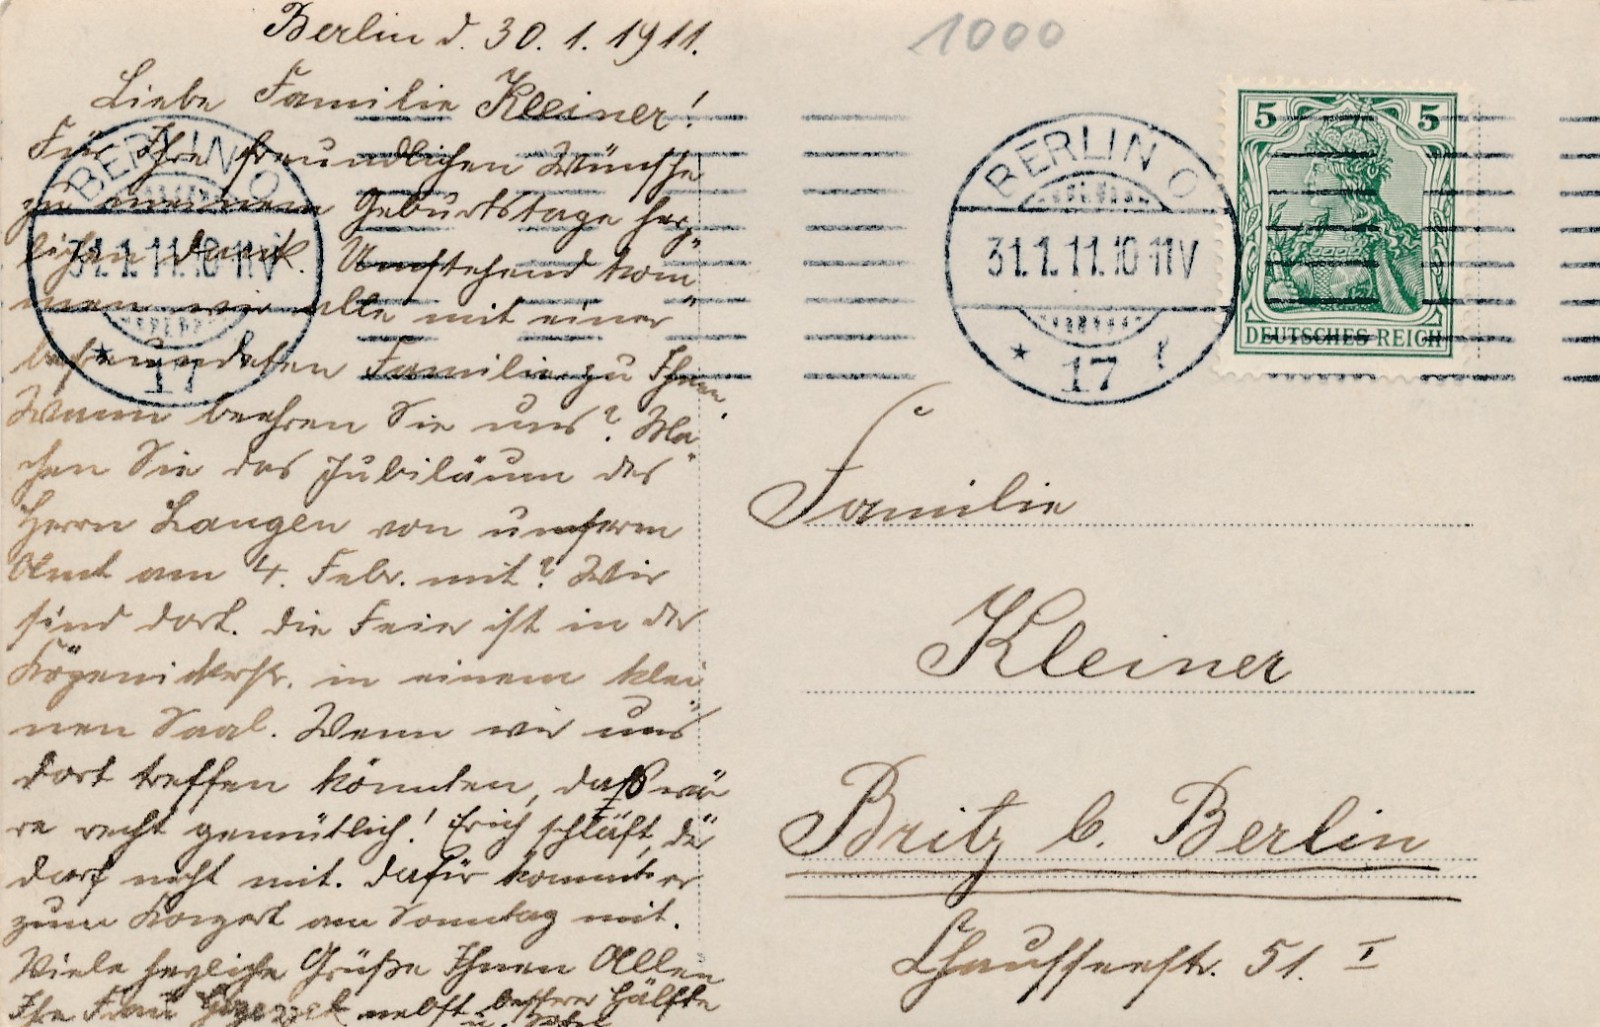 Berlin d. 30.1.1911.
Liebe Familie Kleiner!
Für Ihre freundlichen Wünsche
zu meinem Geburtstage herz-
lichen Dank. Umstehend kom-
men wir alle mit einer
befreundeten Familie zu Ihnen.
Wann beehren Sie uns? Ma-
chen Sie das Jubiläum des
Herrn Langen von unserm
Amt am 4. Febr. mit? Wir
sind dort. Die Feier ist in der
in einem klei-
nen Saal. Wenn wir uns
dort treffen könnten, daß wä-
re recht gemütlich! Erich schläft, der
darf nicht mit. Dafür kommt er
zum Konzert am Sonntag mit.
Viele herzliche Grüße Ihnen Allen
Ihre Frau nebst besserer Hälfte
u.
1000
BERLIN O
31.1.11.10-11V
* 17 f
BERLIN O
31.1.11.10-11V
* 17 f
5 5
DEUTSCHES REICH
Familie
Kleiner
Britz b. Berlin
Chausseestr. 51. I